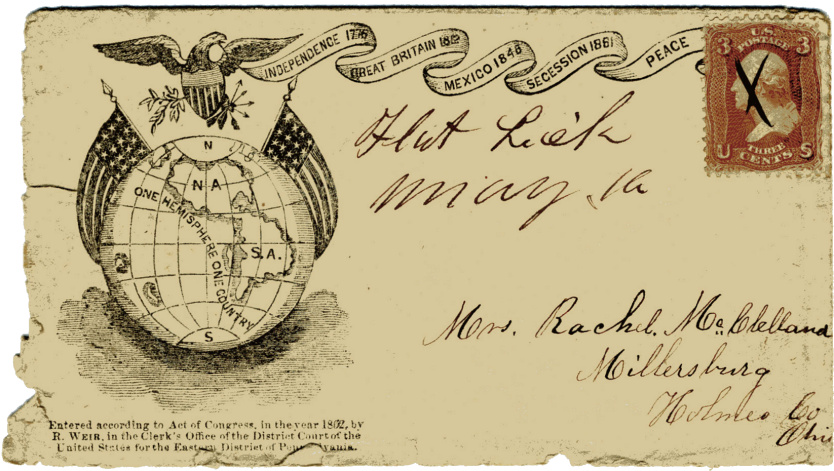 INDEPENDENCE 1776
GREAT BRITAIN 1812
MEXICO 1848
SECENSSION 1861
PEACE
3 U.S. 3
POSTAGE
THREE
U CENTS S
Flat Lick
May 10
N
N A
ONE HEMISPHERE ONE COUNTRY
S.A.
S
Mrs. Rachel. McClelland
Millersburg
Holmes Co
Ohio
Entered according to Act of Congress, in the year 1862, by
R. WEIR, in the Clerk's Office of the District Court of the
United States for the Eastern District of Pennsylvania.